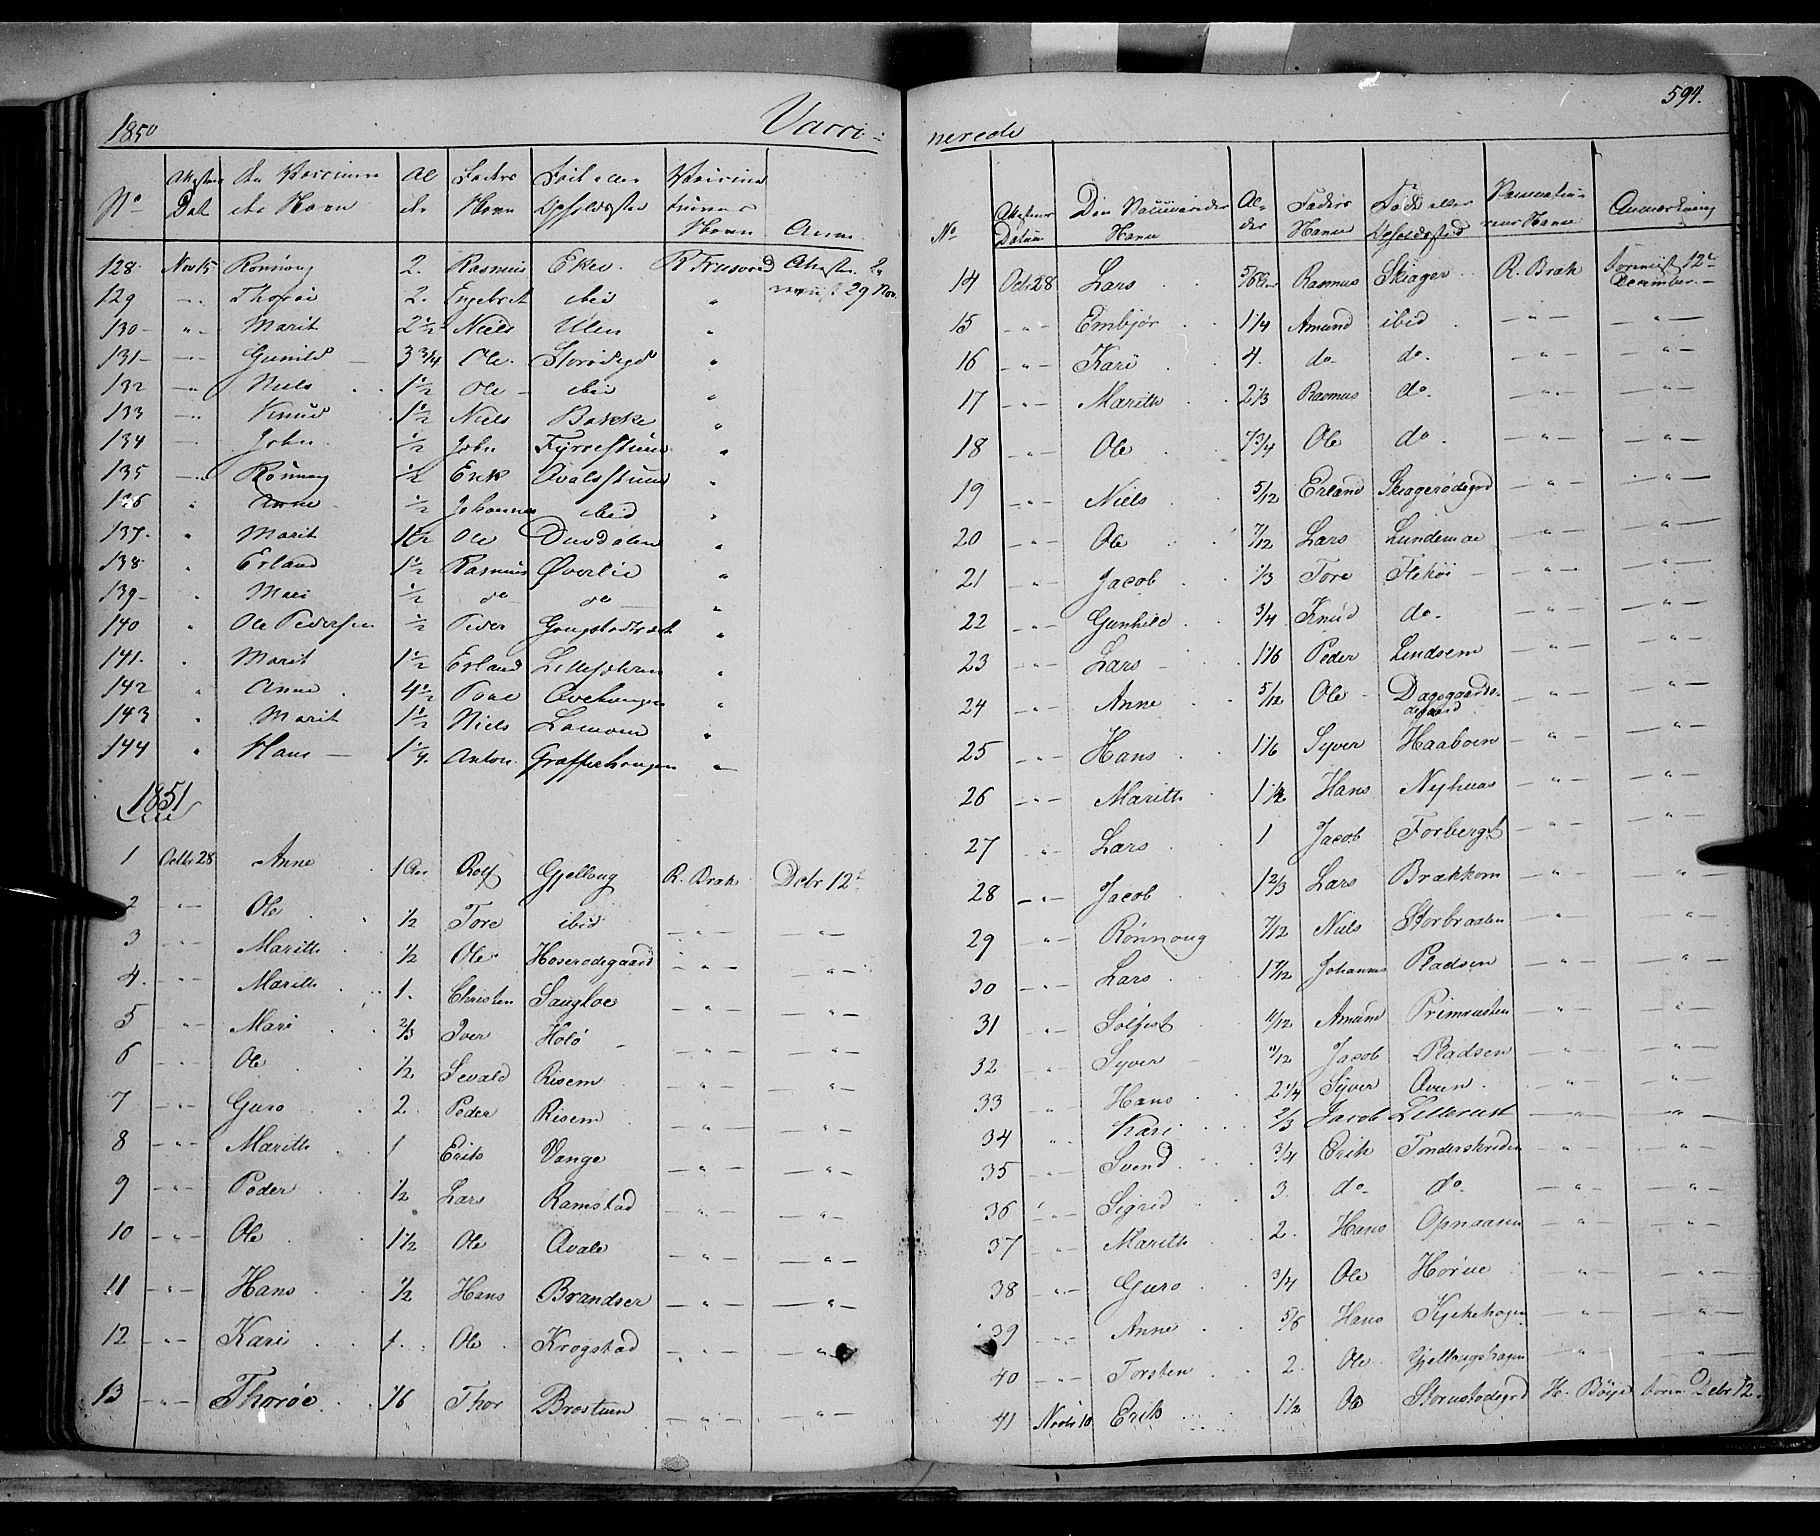 1850 Vacci-
No Attestens Dat. Den Vaccinere des Navn Al der Faders Navn Opholdssted Vaccina teurens Navn Anm.
128. Nov 15 Rønnoug 2. Rasmus Eker. R Trusvod
129 " Thorøe 2. Engebret ibid " 29 Nov.
130 " Marit 2 1/2 Niels Ulen "
131 " Gunild 3 3/4 Ole. Storødegd "
132 " Niels 1 1/2 Ole ibid "
133 " Knud 1 1/2 Niels Bakke "
134 John 1/2 John "
135 " Rønnoug 1/2 Erik "
136 " Anne 1/2 Johannes ibid "
137. " Marit 1 1/2 Ole Dusdalen "
138. " Erland 1 1/2 Rasmus Øverlie "
139 " Mari 1/2 do do "
140 " Ole Pedersen 1/2 Peder "
141. " Marit 1 1/2 Erland "
142 " Anne 4 1/2 Tore "
143 " Marit 1 1/2 Niels "
144 " Hans 1 1/4 Anton Grafferhaugen "
1851
1 Octbr 28 Anne 1 Aar Rolf Gjelloug R. Bræk Debr 12te
2 " Ole 1/2 Tore ibid " "
3 " Marith 1/2 Ole Hoserødegaard " "
4. " Marith 1. Christen Sangloe " "
5 " Mari 2/3 Iver Holø " "
6 " Ole 1/2 Sevald Risem " "
7 " Guro 2. Peder Risem " "
8 " Marith 1 Erik Vange " "
9 " Peder 1/2 Lars Ramstad " "
10 " Ole 1 1/2 Ole Avale " "
11 " Hans 1/2 Hans Brandser " "
12 " Kari 1. Ole Krogstad " "
13 " Thorøe 1/6 Thor Brostuen " "
594.
nerede
No Attestens Datum Den Vaccineredes Navn Al- der Faders Navn Føde eller Opholdssted Vaccinatio- neurs Navn Anmærkning
14 Octr 28 Lars 5/6 Aar Rasmus Skiager R. Bræk 12te December.
15 " Embjør 1 1/4 Amund ibid " "
16 " Kari 4. do do. " "
17 " Marith 2 1/3 Rasmus do. " "
18 " Ole 7 3/4 Ole do " "
19 " Niels 5/12 Erland Skiagerødegrd " "
20 " Ole 7/12 Lars Lundemoe " "
21 " Jacob 1/3 Tore Flekøi " "
22 " Gunhild 3/4 Knud do. " "
23 " Lars 1 1/6 Peder Lindsem " "
24 " Anne 5/12 Ole Dagsgaards- ødegaard " "
25 " Hans 1 1/6 Syver Haaboen " "
26 " Marith 1 1/2 Hans Nyhuus " "
27 " Lars 1 Jacob Forbergt " "
28 " Jacob 1 2/3 Lars Brækkom " "
29 " Rønnoug 7/12 Niels Storbraaten " "
30 " Lars 1 7/12 Johannes Pladsen " "
31 " Solfest 11/12 Amund Primrusten " "
32 " Syver 11/12 Jacob Pladsen " "
33 " Hans 2 1/4 Syver Aven " "
34 " Kari 2/3 Jacob Lillerust " "
35 " Svend 3/4 Erik Tonderskriden " "
36 " Sigrid 3. do do " "
37 " Marith 2. Hans Opnaasen " "
38 " Guro 3/4 Ole Hørve " "
39 " Anne 5/6 Hans Kjekehagen " "
40 " Torsten 2. Ole Gjellougshagen " "
41 Novbr 10 Erik 1 1/2 Ole Storustødegrd H. Bøye Debr 12.